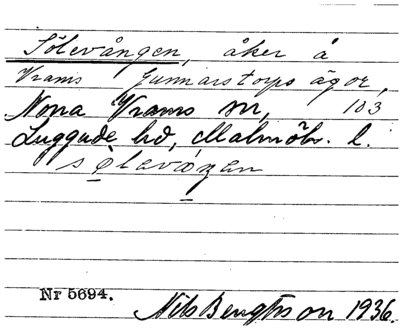 Sölevången, åker å
Vrams Gunnarstorps ägor,
Norra Vrams sn, 103
Luggude hd, Malmöhs. l.
sølevåŋen
Nr 5694.
Nils Bengtsson 1936.